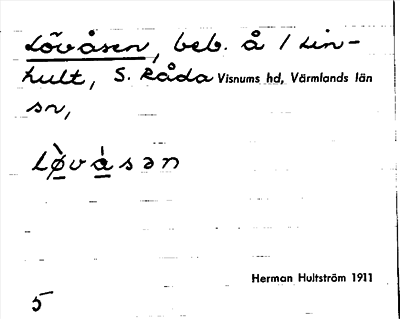 Lövåsen, beb. å 1 Lin-
hult, S. Råda Visnums hd, Värmlands län
sn,
Lø̀vàsən
Herman Hultström 1911
5